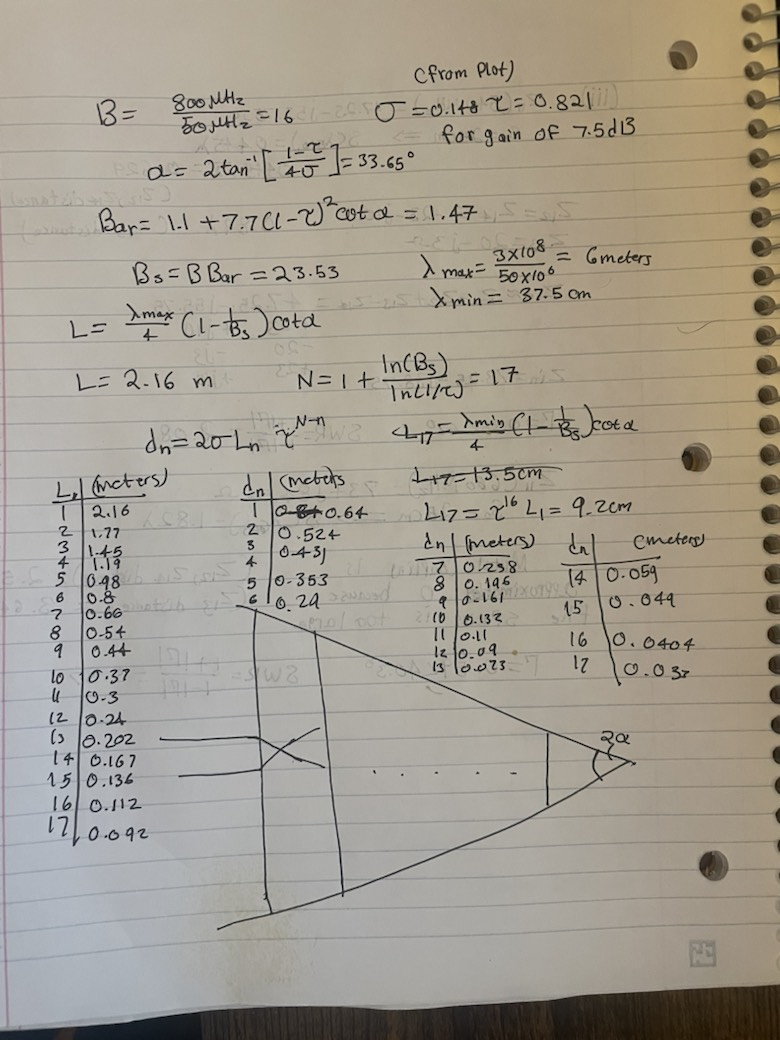 (from Plot)
B = 800 MHz / 50 MHz = 16
σ = 0.148 τ = 0.821
for gain of 7.5dB
α = 2tan⁻¹[(1-τ)/(4σ)] = 33.65°
Bar = 1.1 + 7.7(1-τ)² cot α = 1.47
Bs = B Bar = 23.53
λmax = 3×10⁸ / 50×10⁶ = 6 meters
λmin = 37.5 cm
L = λmax/4 (1 - 1/Bs) cot α
L = 2.16 m
N = 1 + ln(Bs)/ln(1/τ) = 17
dn = 2σ Ln τ^(N-n)
L17 = λmin/4 (1 - 1/Bs) cot α
L17 = 13.5cm
L17 = τ¹⁶ L1 = 9.2cm
L (meters)
1 2.16
2 1.77
3 1.45
4 1.19
5 0.98
6 0.8
7 0.66
8 0.54
9 0.44
10 0.37
11 0.3
12 0.24
13 0.202
14 0.167
15 0.136
16 0.112
17 0.092
dn (meters
1 0.64
2 0.524
3 0.431
4
5 0.353
6 0.29
dn (meters)
7 0.238
8 0.196
9 0.161
10 0.132
11 0.11
12 0.09
13 0.073
dn (meters)
14 0.059
15 0.049
16 0.0404
17
2α